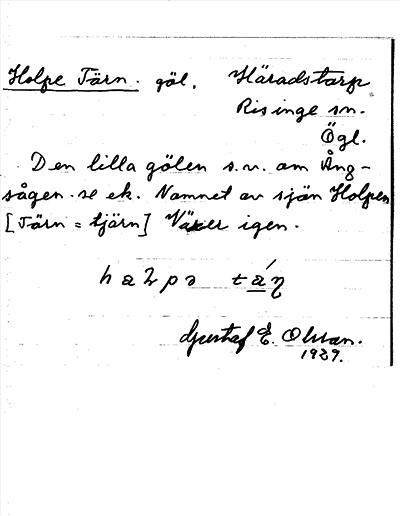 Holpe Tärn. göl. Häradstorp
Risinge sn.
Ögl.
Den lilla gölen s.v. om Ång-
sågen. se ek. Namnet av sjön Holpen
[Tärn = tjärn] Växer igen.
Gustaf E. Olsson.
1929.